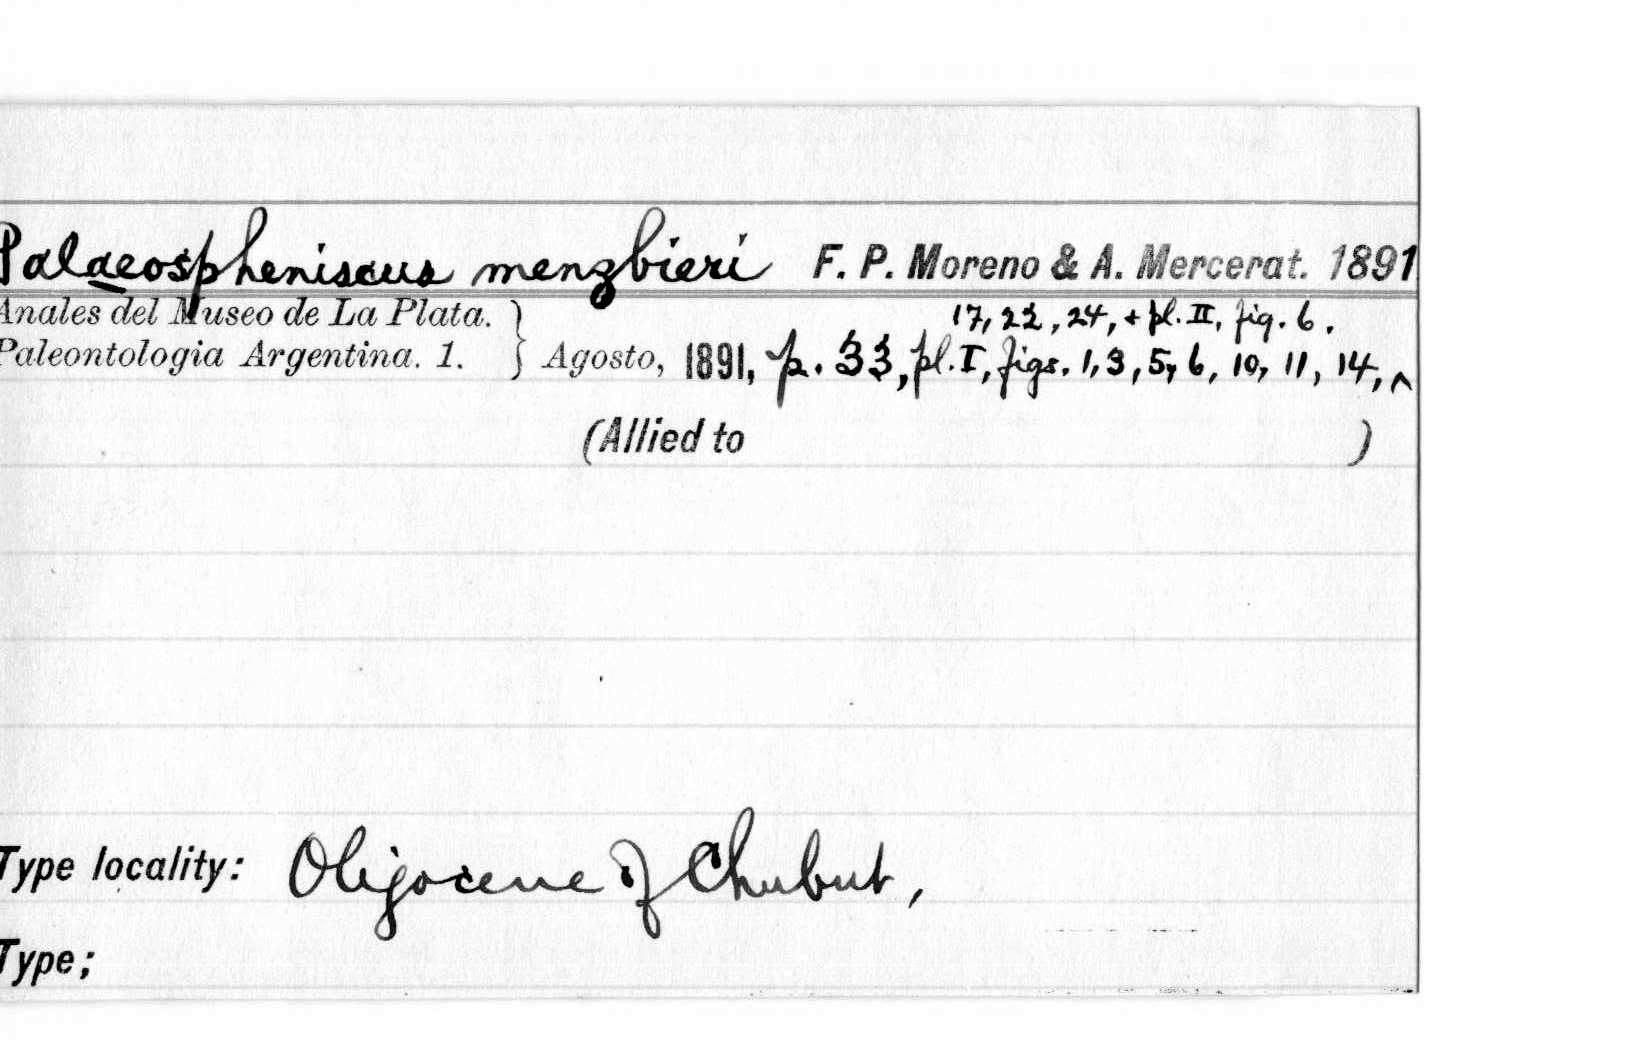 Palaeospheniscus menzbieri F. P. Moreno & A. Mercerat. 1891
Anales del Museo de La Plata. 17, 22, 24, + pl. II, fig. 6.
Paleontologia Argentina. 1. } Agosto, 1891, p. 33, pl. I, figs. 1, 3, 5, 6, 10, 11, 14, ^
(Allied to )
Type locality: Oligocene of Chubut,
Type;